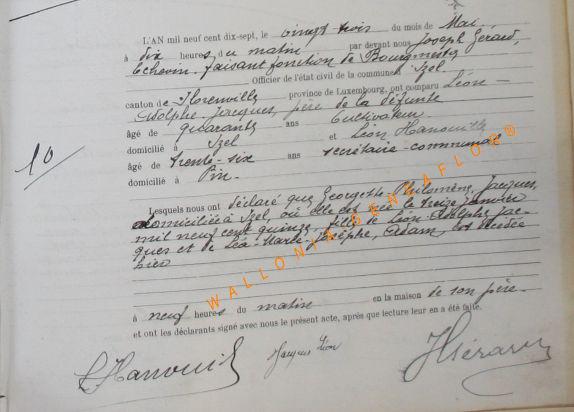 L'AN mil neuf cent dix-sept, le vingt trois du mois de Mai
à dix heures du matin par devant nous Joseph Gérard,
Echevin faisant fonction de Bourgmestre
Officier de l'état civil de la commune d'Izel
canton de Florenville province de Luxembourg, ont comparu Léon
Adolphe Jacques, père de la défunte
âgé de quarante ans Cultivateur
domicilié à Izel et Léon Hanouille
âgé de trente-six ans secrétaire-communal
domicilié à Pin
Lesquels nous ont déclaré que Georgette Philomène, Jacques,
domiciliée à Izel, où elle est née le treize janvier
mil neuf cent quinze, fille de Léon Adolphe Jac-
ques et de Léa Marie Josèphe, Adam, est décédée
hier
à neuf heures du matin en la maison de son père
et ont les déclarants signé avec nous le présent acte, après que lecture leur en a été faite.
10
WALLONIA GEN AFLO ®
L Hanouille
Jacques Léon
J Gérard